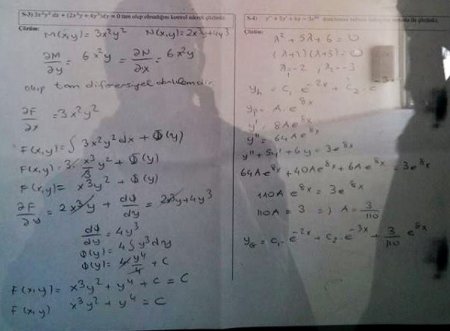 S-3) 3x²y² dx + (2x³y + 4y³)dy = 0 tam olup olmadığını kontrol ederek çözünüz.
Çözüm:
M(x,y) = 3x²y² N(x,y) = 2x³y+4y³
∂M/∂y = 6x²y = ∂N/∂x = 6x²y
olup tam diferansiyel denklemdir.
∂F/∂x = 3x²y²
F(x,y) = ∫ 3x²y² dx + Φ(y)
F(x,y) = 3·x³/3 y² + Φ(y)
F(x,y) = x³y² + Φ(y)
∂F/∂y = 2x³y + dΦ/dy = 2x³y + 4y³
dΦ/dy = 4y³
Φ(y) = 4∫y³dy
Φ(y) = 4y⁴/4 + C
F(x,y) = x³y² + y⁴ + C = C
F(x,y) x³y² + y⁴ = C
S-4) y'' + 5y' + 6y = 3e⁸ˣ
Çözüm:
λ² + 5λ + 6 = 0
(λ+2)(λ+3) = 0
λ₁ = -2, λ₂ = -3
yₕ = C₁e⁻²ˣ + C₂e
y = Ae⁸ˣ
y' = 8Ae⁸ˣ
y'' = 64Ae⁸ˣ
y'' + 5y' + 6y = 3e⁸ˣ
64Ae⁸ˣ + 40Ae⁸ˣ + 6Ae⁸ˣ = 3e⁸ˣ
110Ae⁸ˣ = 3e⁸ˣ
110A = 3 ⇒ A = 3/110
y_G = C₁e⁻²ˣ + C₂e⁻³ˣ + 3/110 e⁸ˣ